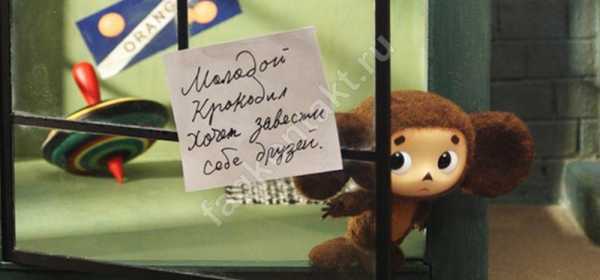 ORANG
Молодой
Крокодил
Хочет завести
себе друзей.